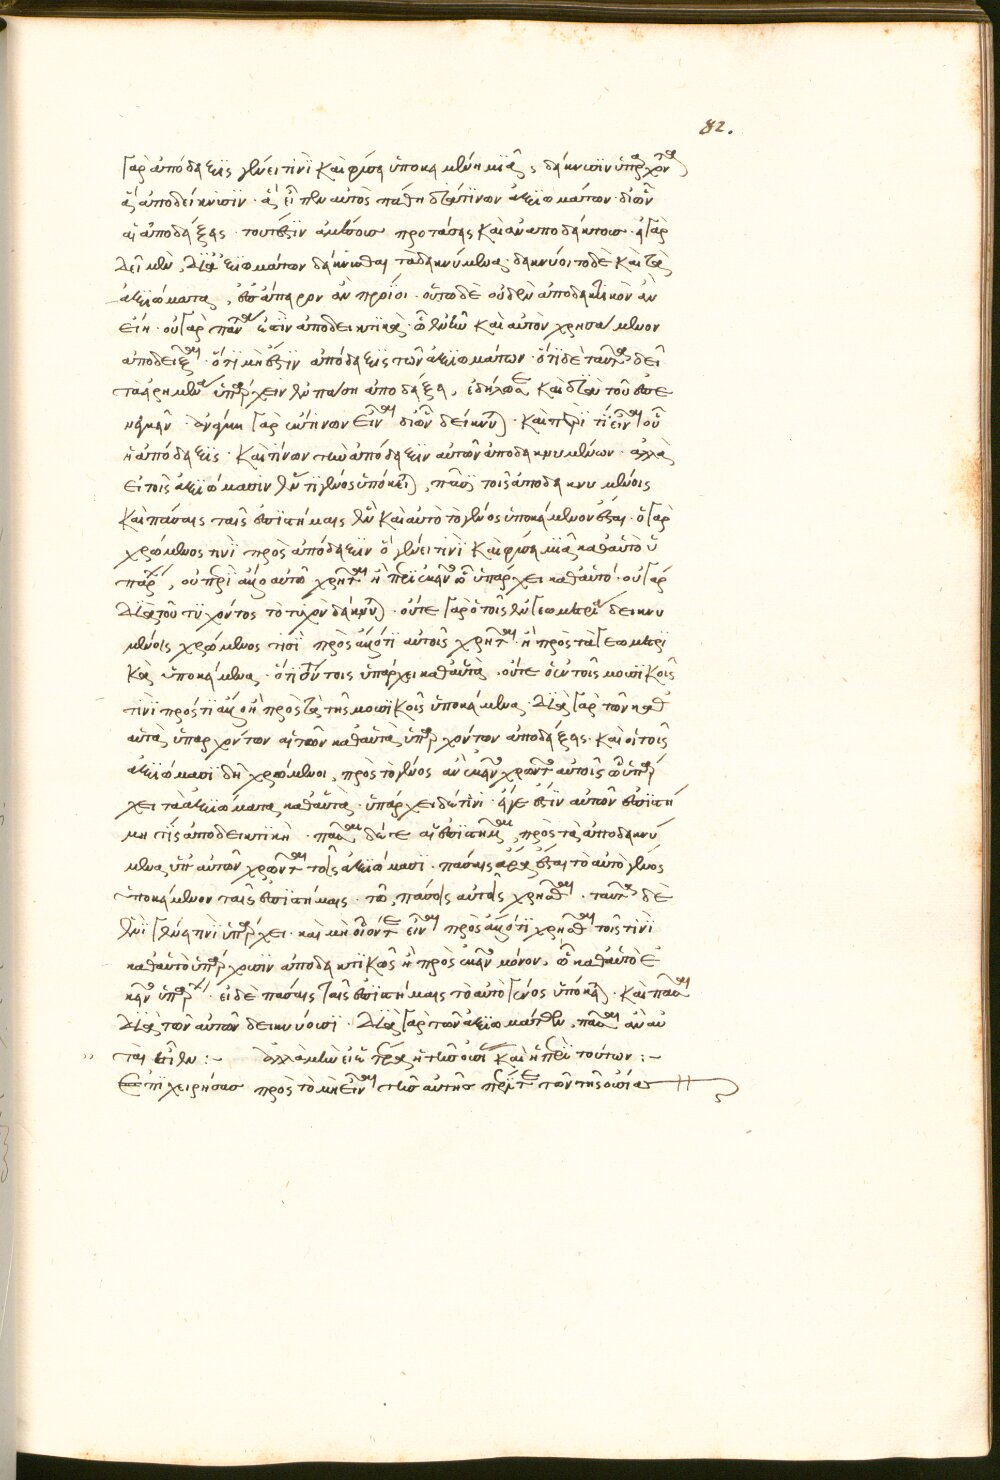 82.
γὰρ ἀπόδειξις γένει τινὶ καὶ φύσει ὑποκειμένη μιᾷ, δείκνυσιν ὑπάρχοντα
ἃ ἀποδείκνυσιν· ἃ εἴη πρὸς αὐτὸς πάθη διά τινων ἀξιωμάτων· δι' ὧν
αἱ ἀποδείξεις· τουτέστιν ἀμέσοις προτάσεις καὶ ἀναποδείκτοις· εἰ γὰρ
δεῖ μὲν διὰ ἀξιωμάτων δείκνυσθαι τὰ δεικνύμενα· δεικνύοιτο δὲ καὶ τὰ
ἀξιώματα, ἐπ' ἄπειρον ἂν προίοι· οὕτω δὲ οὐδὲν ἀποδεικτικὸν ἂν
εἴη· οὐ γὰρ πάντα ἐστὶν ἀποδεικτικὰ· ὧ καὶ αὐτὸν χρησάμενον
ἀποδεῖξαι· ὅτι μὴ ἔστιν ἀπόδειξις τῶν ἀξιωμάτων· ὅτι δὲ ταῦτα δεῖ
τὰ εἰρημένα ὑπάρχειν ἐν πάσῃ ἀποδείξει, ἐδήλωσε καὶ διὰ τοῦ ἐπενεγκεῖν·
ἀνάγκη γὰρ ἔκ τινων εἶναι δι' ὧν δείκνυται· καὶ περί τι εἶναι οὗ
ἡ ἀπόδειξις· καὶ τινων τὴν ἀπόδειξιν αὐτῶν ἀποδεικνυμένων· ἀλλὰ
εἰ τοῖς ἀξιώμασιν ἕν τι γένος ὑπόκειται, πᾶσι τοῖς ἀποδεικνυμένοις
καὶ πάσαις ταῖς ἐπιστήμαις ἓν καὶ αὐτὸ τὸ γένος ὑποκείμενον ἔσται· ὁ γὰρ
χρώμενος τινὶ πρὸς ἀπόδειξιν ὃ γένει τινὶ καὶ φύσει μιᾷ καθ' αὑτὸ ὑ
πάρχει, οὐ περὶ ἄλλο αὐτῷ χρῆται ἢ περὶ ἐκεῖνο ᾧ ὑπάρχει καθ' αὑτό· οὐ γὰρ
διὰ τοῦ τυχόντος τὸ τυχὸν δείκνυται· οὔτε γὰρ ὁ τοῖς ἐν γεωμετρίᾳ δεικνυ
μένοις χρώμενος τισὶ πρὸς ἄλλο τι αὐτοῖς χρῆται ἢ πρὸς τὰ γεωμετρι
κὰ ὑποκείμενα· ὅτι τούτοις ὑπάρχει καθ' αὑτὰ· οὔτε ὁ ἐν τοῖς μουσικοῖς
τινὶ πρός τι ἄλλο ἢ πρὸς τὰ τῆς μουσικοῖς ὑποκείμενα· διὰ γὰρ τῶν καθ'
αὑτὰ ὑπαρχόντων αἱ τῶν καθ' αὑτὰ ὑπαρχόντων ἀποδείξεις· καὶ οἱ τοῖς
ἀξιώμασι δὴ χρώμενοι, πρὸς τὸ γένος ἂν ἐκεῖνο χρῷντο αὐτοῖς ᾧ ὑπάρ
χει τὰ ἀξιώματα καθ' αὑτὰ· ὑπάρχει δέ τινι· εἴγε ἔστιν αὐτῶν ἐπιστή
μη τις ἀποδεικτικὴ· πᾶσαι δέ τε αἱ ἐπιστῆμαι πρὸς τὰ ἀποδεικνύ
μενα ὑπ' αὐτῶν χρῶνται τοῖς ἀξιώμασι· πάσαις ἄρα ἔσται τὸ αὐτὸ γένος
ὑποκείμενον ταῖς ἐπιστήμαις· τῷ πάσαις αὐτοῖς χρῆσθαι· ταῦτα δὲ
ἑνὶ γένει τινὶ ὑπάρχει· καὶ μὴ οἷόν τε εἶναι πρὸς ἄλλο τι χρῆσθαι τοῖς τινὶ
καθ' αὑτὸ ὑπάρχουσιν ἀποδεικτικῶς ἢ πρὸς ἐκεῖνο μόνον, ᾧ καθ' αὑτὸ ἐ
κεῖνο ὑπάρχει· εἰ δὲ πάσαις ταῖς ἐπιστήμαις τὸ αὐτὸ γένος ὑπόκειται· καὶ πᾶσαι
διὰ τῶν αὐτῶν δεικνύουσι· διὰ γὰρ τῶν ἀξιωμάτων, πᾶσαι ἂν αὑ
ται εἶεν :- ἀλλὰ μὴν εἰ ἑτέρα ἡ τῆς οὐσίας καὶ ἡ περὶ τούτων :-
Ἐπιχειρήσας πρὸς τὸ μὴ εἶναι τῆς αὐτῆς περί τε τῶν τῆς οὐσίας